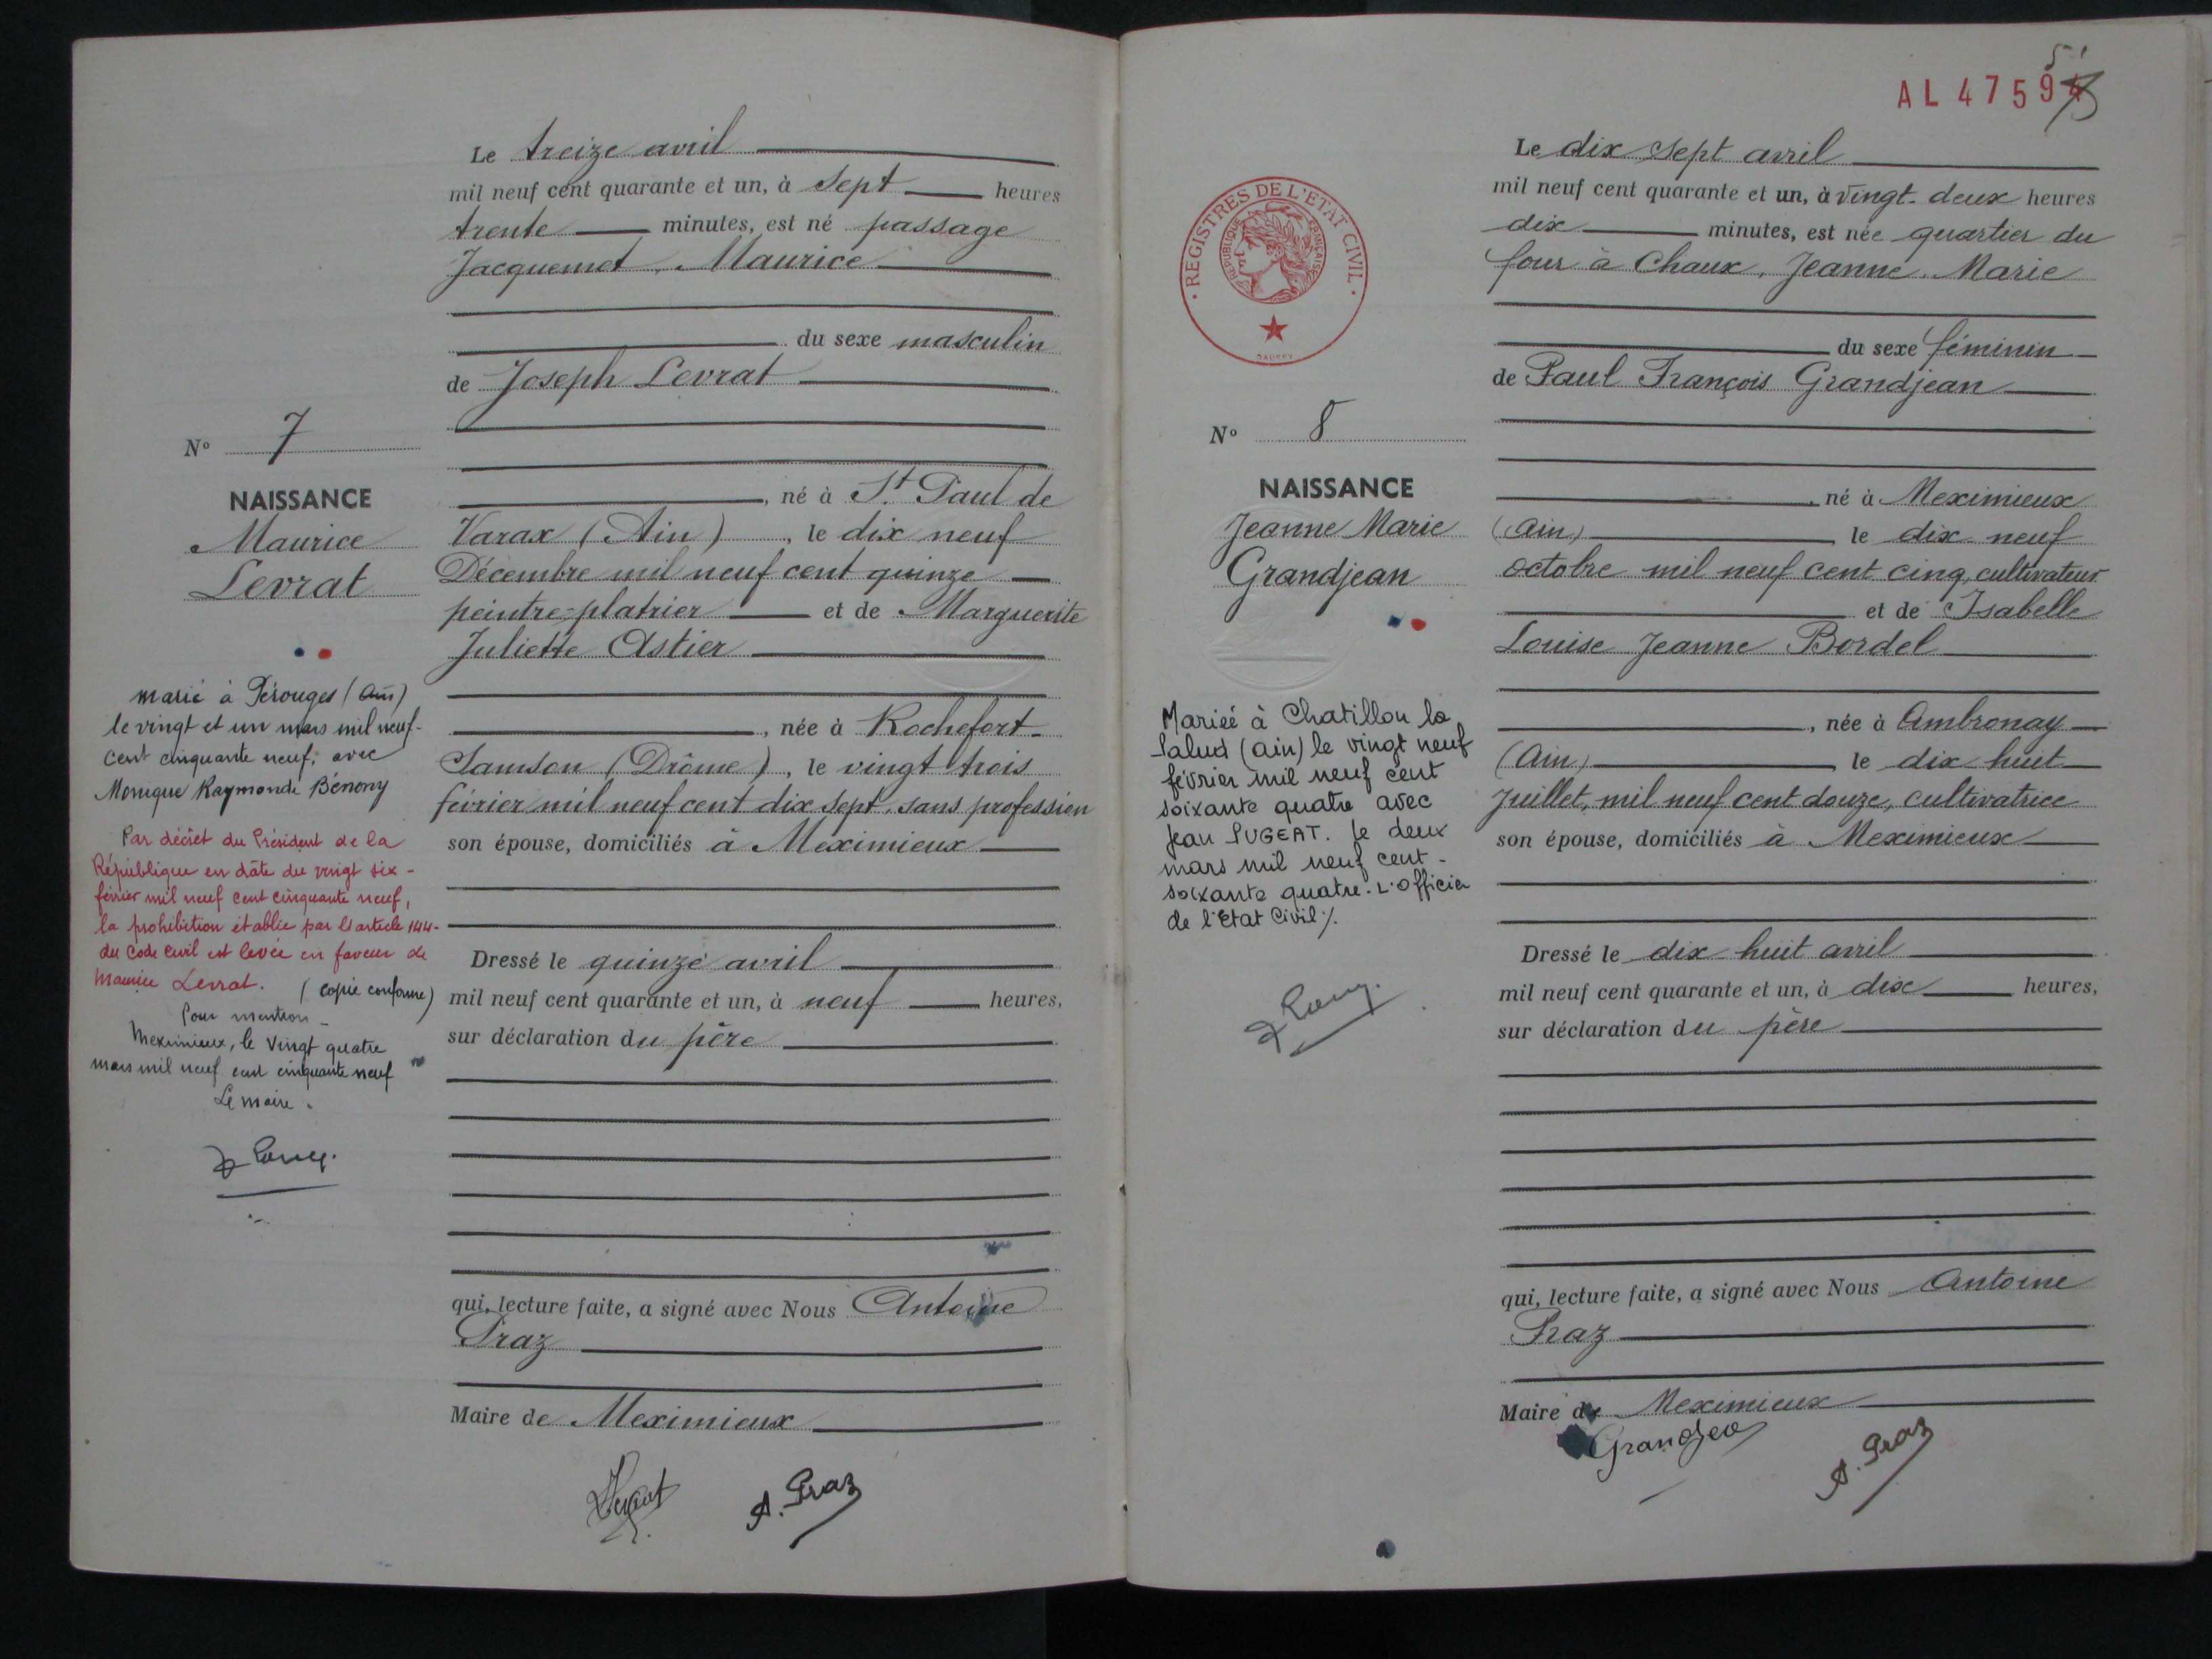 Le treize avril
mil neuf cent quarante et un, à sept heures
trente minutes, est né passage
Jacquemet, Maurice
du sexe masculin
de Joseph Levrat
N° 7
NAISSANCE
Maurice
Levrat
, né à St. Paul de
Varax (Ain), le dix neuf
Décembre mil neuf cent quinze
peintre-platrier et de Marguerite
Juliette Astier
, née à Rochefort-
Samson (Drôme), le vingt trois
février mil neuf cent dix sept, sans profession
son épouse, domiciliés à Meximieux
Dressé le quinze avril
mil neuf cent quarante et un, à neuf heures,
sur déclaration du père
qui, lecture faite, a signé avec Nous Antoine
Praz
Maire de Meximieux
A. Praz
marié à Pérouges (Ain)
le vingt et un mars mil neuf-
cent cinquante neuf, avec
Monique Raymonde Bénony
Par décret du Président de la
République en date du vingt six-
février mil neuf cent cinquante neuf,
la prohibition établie par l'article 144-
du Code civil est levée en faveur de
Maurice Levrat. (copie conforme)
Pour mention-
Meximieux, le vingt quatre
mars mil neuf cent cinquante neuf
Le maire.
AL 4759
51
REGISTRES DE L'ETAT CIVIL
REPUBLIQUE FRANÇAISE
Le dix sept avril
mil neuf cent quarante et un, à vingt-deux heures
dix minutes, est née quartier du
four à Chaux, Jeanne Marie
du sexe féminin
de Paul François Grandjean
N° 8
NAISSANCE
Jeanne Marie
Grandjean
né à Meximieux
(Ain) le dix-neuf
octobre mil neuf cent cinq, cultivateur
et de Isabelle
Louise Jeanne Bordel
, née à Ambronay
(Ain) le dix huit
Juillet, mil neuf cent douze, cultivatrice
son épouse, domiciliés à Meximieux
Dressé le dix-huit avril
mil neuf cent quarante et un, à dix heures,
sur déclaration du père
qui, lecture faite, a signé avec Nous Antoine
Praz
Maire de Meximieux
A. Praz
Mariée à Chatillon la
Palud (Ain) le vingt neuf
février mil neuf cent
soixante quatre avec
Jean PUGEAT. le deux
mars mil neuf cent-
soixante quatre. L'Officier
de l'Etat Civil ./.